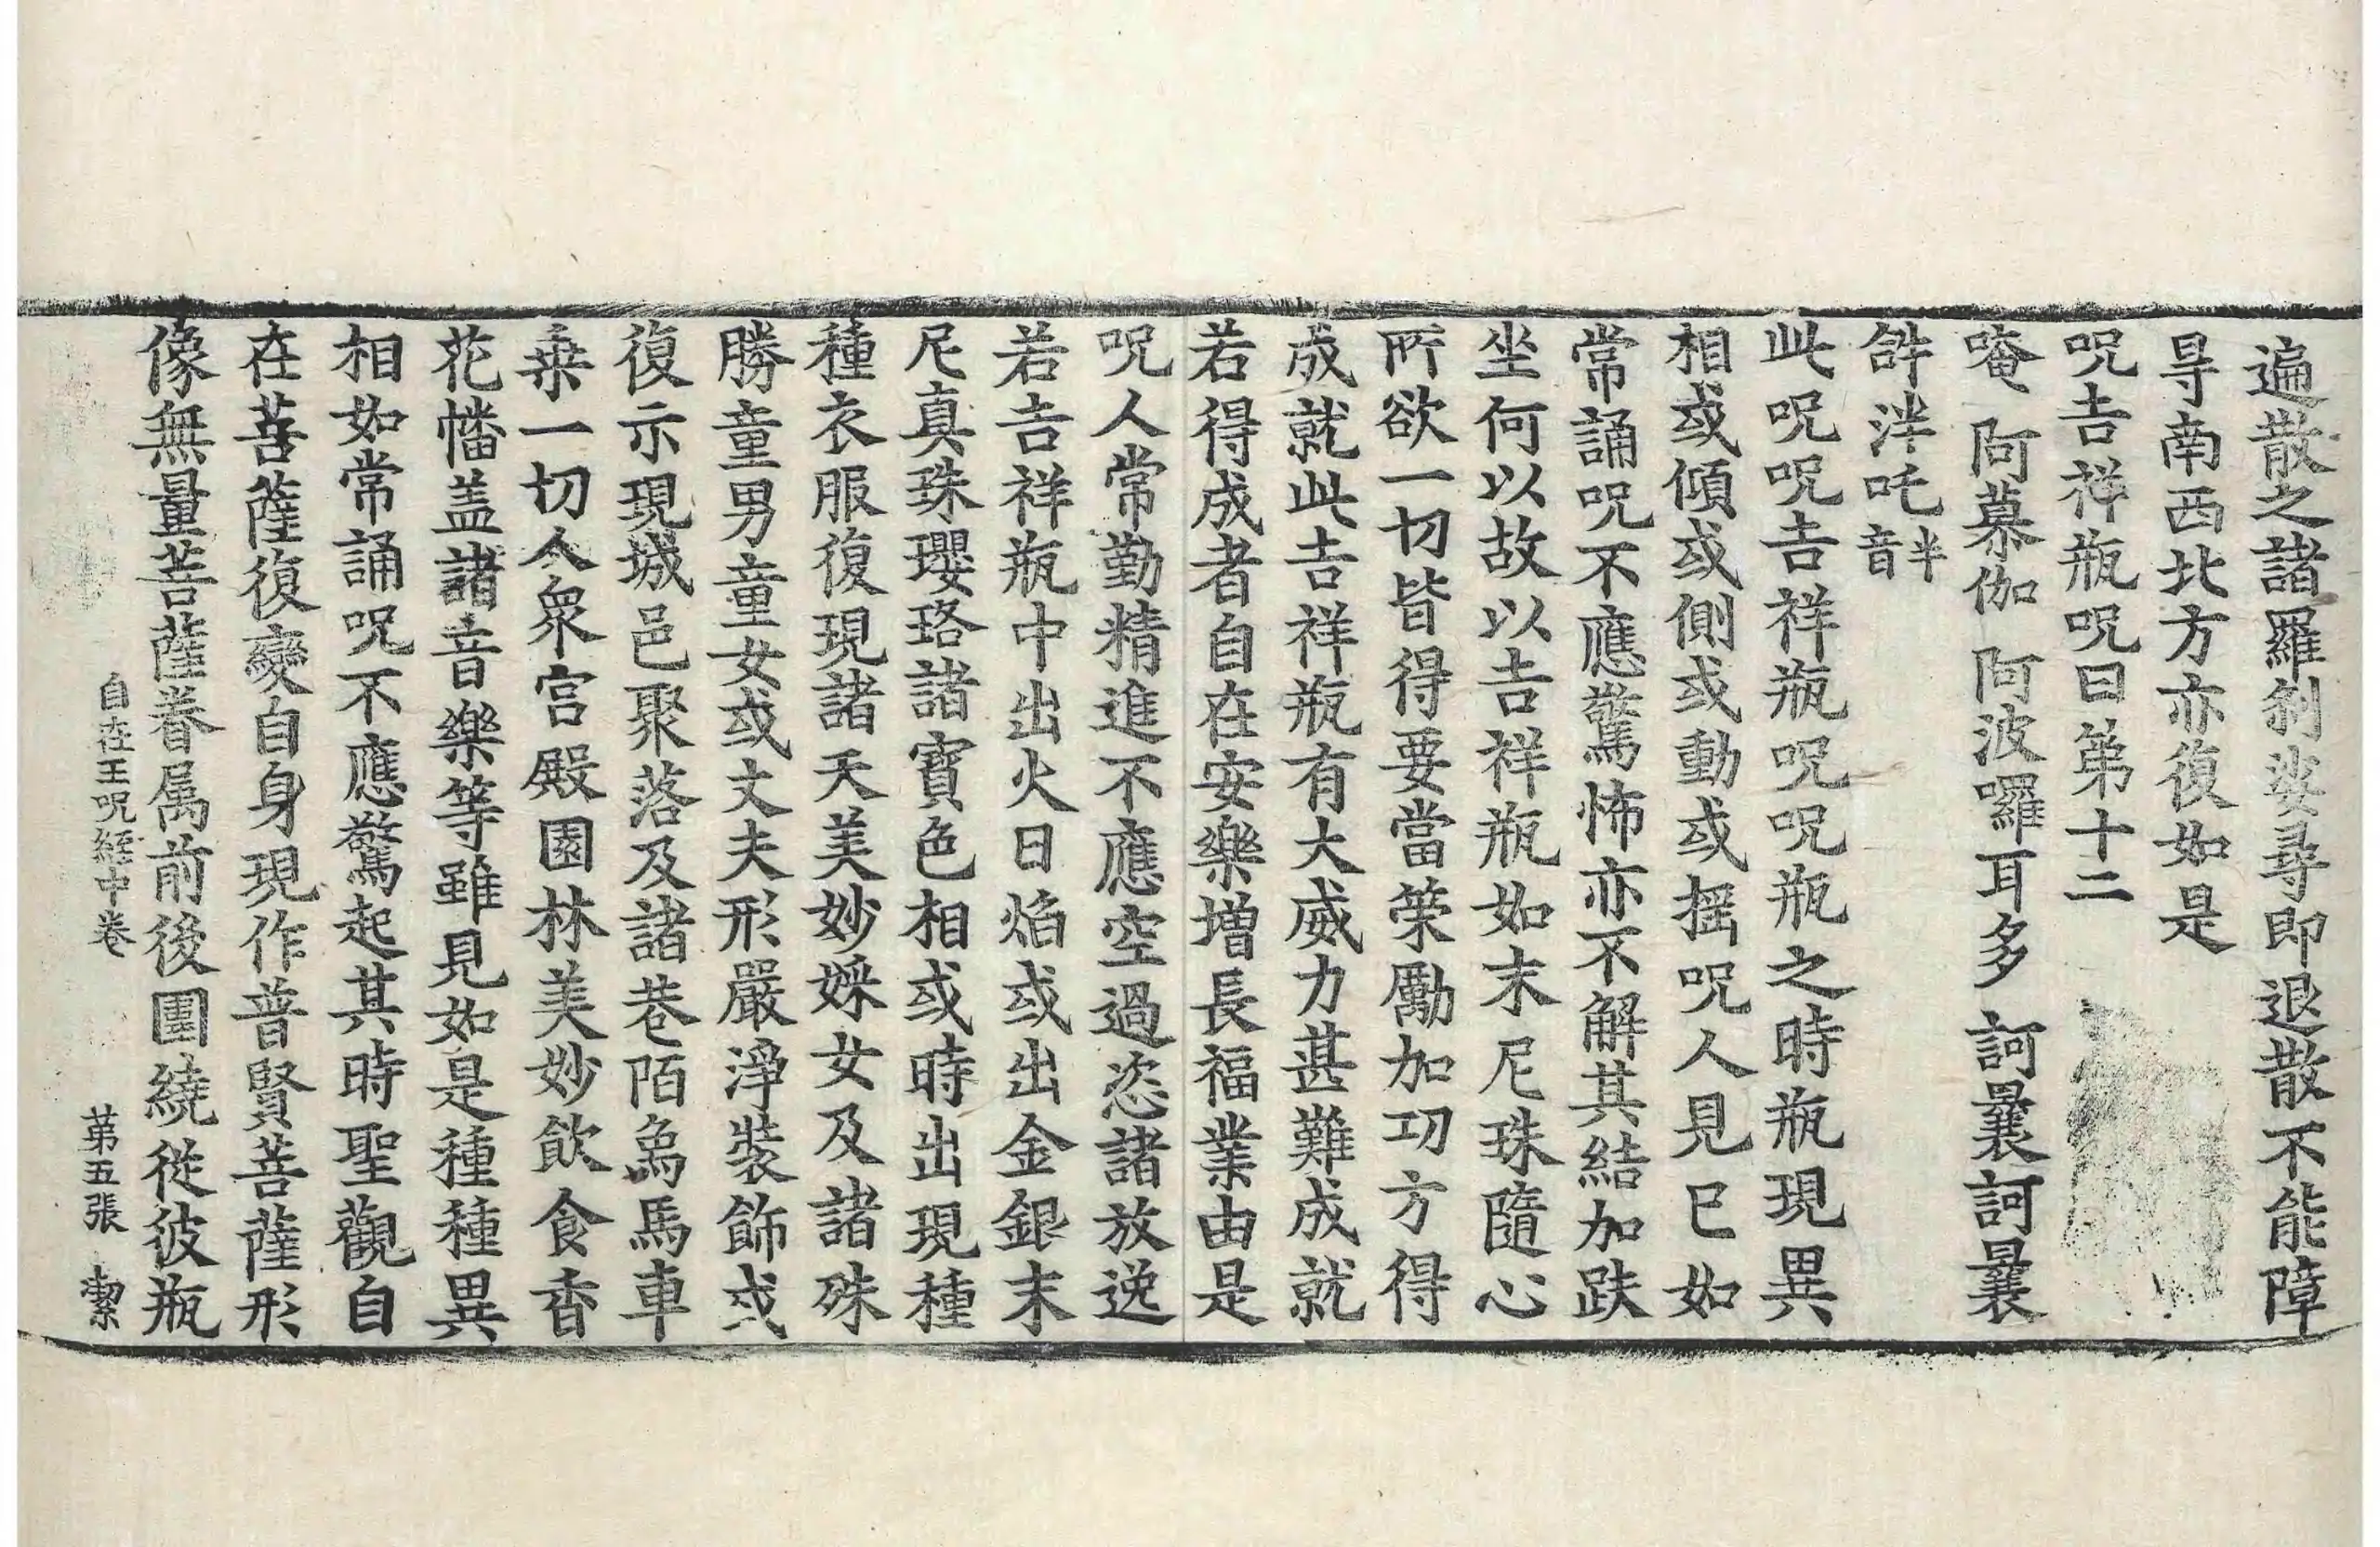 遍散之諸羅剎娑尋即退散不能障
㝵南西北方亦復如是
呪吉祥瓶呪曰第十二
唵 阿慕伽 阿波囉耳多 訶曩訶曩
𤙖泮吒半音
此呪呪吉祥瓶呪呪瓶之時瓶現異
相或傾或側或動或摇呪人見已如
常誦呪不應驚怖亦不解其結加趺
坐何以故以吉祥瓶如末尼珠隨心
所欲一切皆得要當策勵加功方得
成就此吉祥瓶有大威力甚難成就
若得成者自在安樂增長福業由是
呪人常勤精進不應空過恣諸放逸
若吉祥瓶中出火日焰或出金銀末
尼真珠瓔珞諸寶色相或時出現種
種衣服復現諸天美妙婇女及諸殊
勝童男童女或丈夫形嚴淨裝飾或
復示現城邑聚落及諸巷陌象馬車
乘一切人衆宮殿園林美妙飲食香
花幡盖諸音樂等雖見如是種種異
相如常誦呪不應驚起其時聖觀自
在菩薩復變自身現作普賢菩薩形
像無量菩薩眷属前後圍繞從彼瓶
自在王呪經中卷 第五張 潔